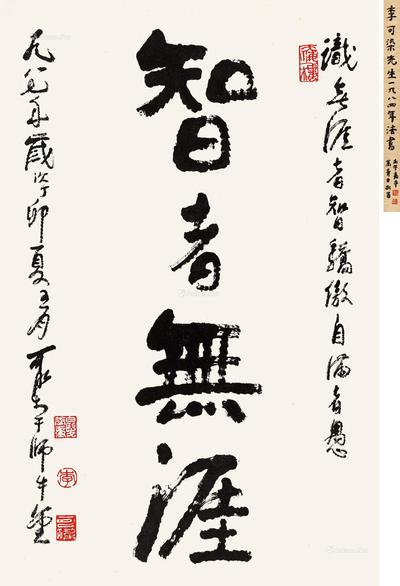 李可染先生一九八四年法書
識無涯者智驕傲自滿者愚
智者無涯
一九八七年歲次丁卯夏五月可染書于師牛堂